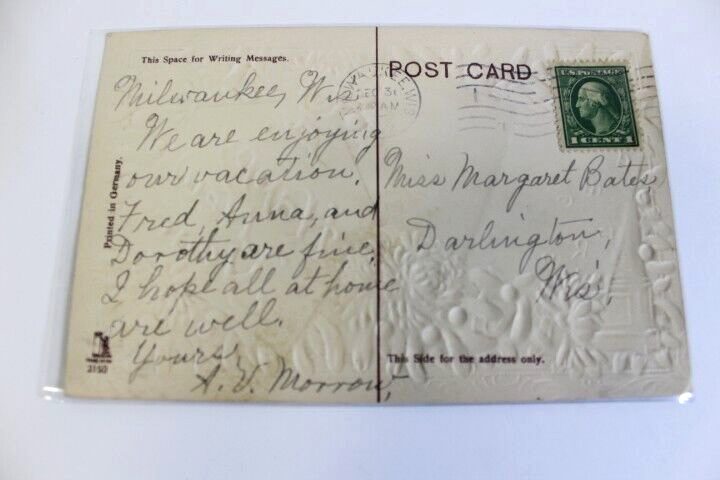 This Space for Writing Messages.
Milwaukee, Wis.
We are enjoying
our vacation.
Fred, Anna, and
Dorothy are fine.
I hope all at home
are well.
Yours,
A. V. Morrow,
Printed in Germany.
2150
POST CARD
MILWAUKEE, WIS
DEC 31
AM
U.S. POSTAGE
1 CENT 1
Miss Margaret Bates
Darlington,
Wis.
This Side for the address only.